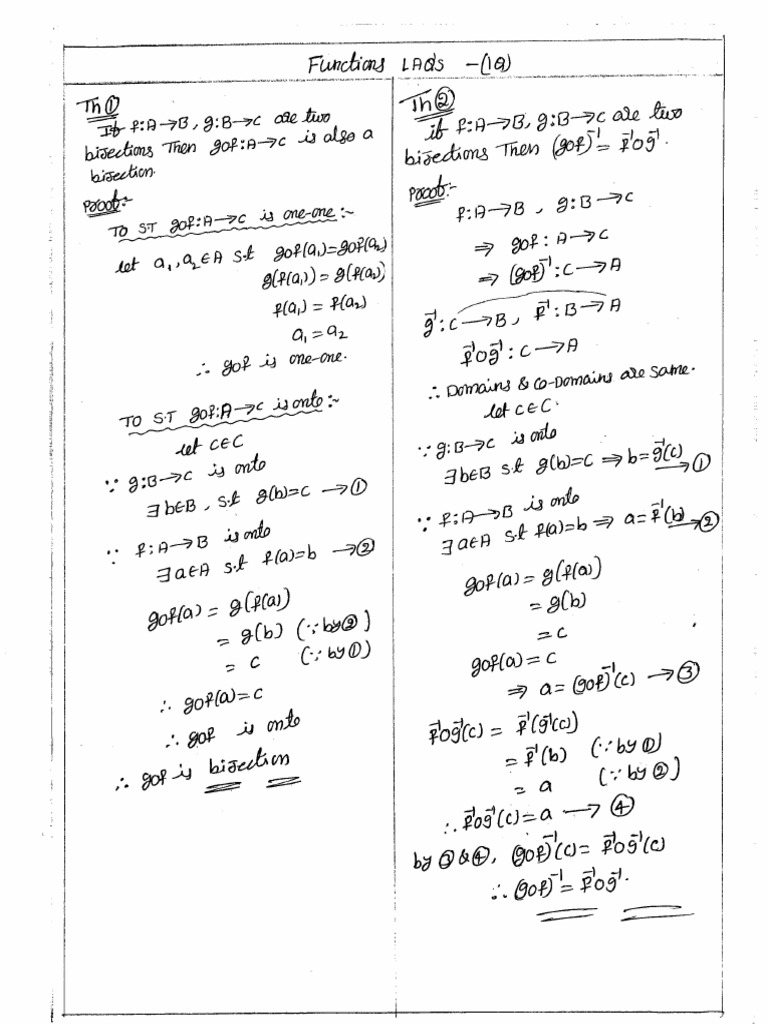 Functions LAQ's -(1Q)
Th ①
If f:A→B, g:B→C are two
bijections Then gof:A→C is also a
bijection.
Proof:-
To S.T gof:A→C is one-one:-
let a₁,a₂∈A s.t gof(a₁)=gof(a₂)
g(f(a₁))=g(f(a₂))
f(a₁)=f(a₂)
a₁=a₂
∴ gof is one-one.
To S.T gof:A→C is onto:-
let C∈C
∵ g:B→C is onto
∃ b∈B, s.t g(b)=C →①
∵ f:A→B is onto
∃ a∈A s.t f(a)=b →②
gof(a) = g(f(a))
= g(b) (∵ by②)
= C (∵ by①)
∴ gof(a)=C
∴ gof is onto
∴ gof is bijection
Th②
if f:A→B, g:B→C are two
bijections Then (gof)⁻¹ = f⁻¹og⁻¹.
Proof:-
f:A→B, g:B→C
⇒ gof : A→C
⇒ (gof)⁻¹ : C→A
g⁻¹:C→B, f⁻¹:B→A
f⁻¹og⁻¹ : C→A
∴ Domains & Co-Domains are same.
let C∈C.
∵ g:B→C is onto
∃ b∈B s.t g(b)=C ⇒ b=g⁻¹(c) →①
∵ f:A→B is onto
∃ a∈A s.t f(a)=b ⇒ a=f⁻¹(b) →②
gof(a) = g(f(a))
= g(b)
= C
gof(a)=C
⇒ a=(gof)⁻¹(c) →③
f⁻¹og⁻¹(c) = f⁻¹(g⁻¹(c))
= f⁻¹(b) (∵ by①)
= a (∵ by②)
∴ f⁻¹og⁻¹(c)=a →④
by ③&④, (gof)⁻¹(c) = f⁻¹og⁻¹(c)
∴ (gof)⁻¹ = f⁻¹og⁻¹.